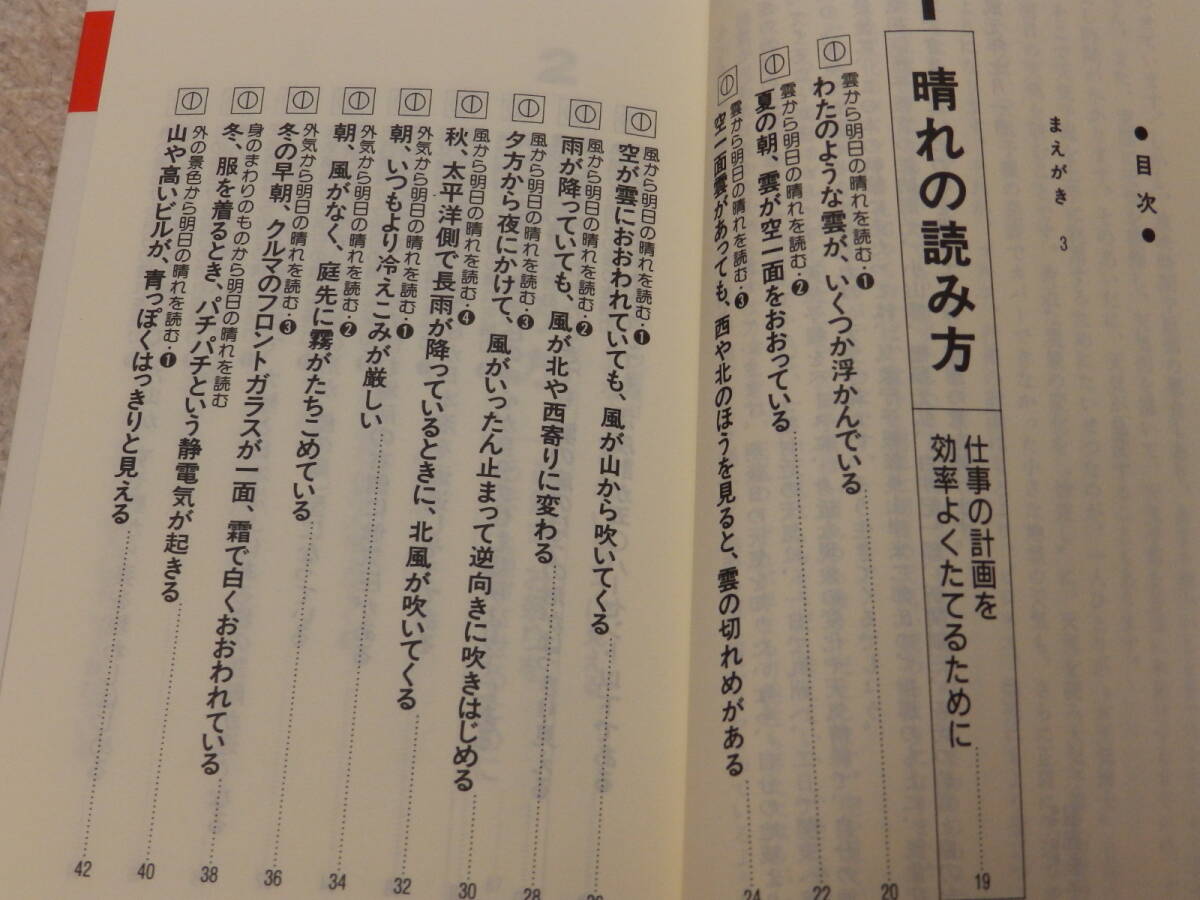 ●目次●
まえがき 3
1
晴れの読み方
仕事の計画を
効率よくたてるために 19
① 雲から明日の晴れを読む・❶
わたのような雲が、いくつか浮かんでいる 20
① 雲から明日の晴れを読む・❷
夏の朝、雲が空一面をおおっている 22
① 雲から明日の晴れを読む・❸
空一面雲があっても、西や北のほうを見ると、雲の切れめがある 24
① 風から明日の晴れを読む・❶
空が雲におおわれていても、風が山から吹いてくる
① 風から明日の晴れを読む・❷
雨が降っていても、風が北や西寄りに変わる 28
① 風から明日の晴れを読む・❸
夕方から夜にかけて、風がいったん止まって逆向きに吹きはじめる 30
① 風から明日の晴れを読む・❹
秋、太平洋側で長雨が降っているときに、北風が吹いてくる 32
① 外気から明日の晴れを読む・❶
朝、いつもより冷えこみが厳しい 34
① 外気から明日の晴れを読む・❷
朝、風がなく、庭先に霧がたちこめている 36
① 外気から明日の晴れを読む・❸
冬の早朝、クルマのフロントガラスが一面、霜で白くおおわれている 38
① 身のまわりのものから明日の晴れを読む
冬、服を着るとき、パチパチという静電気が起きる 40
① 外の景色から明日の晴れを読む・❶
山や高いビルが、青っぽくはっきりと見える 42